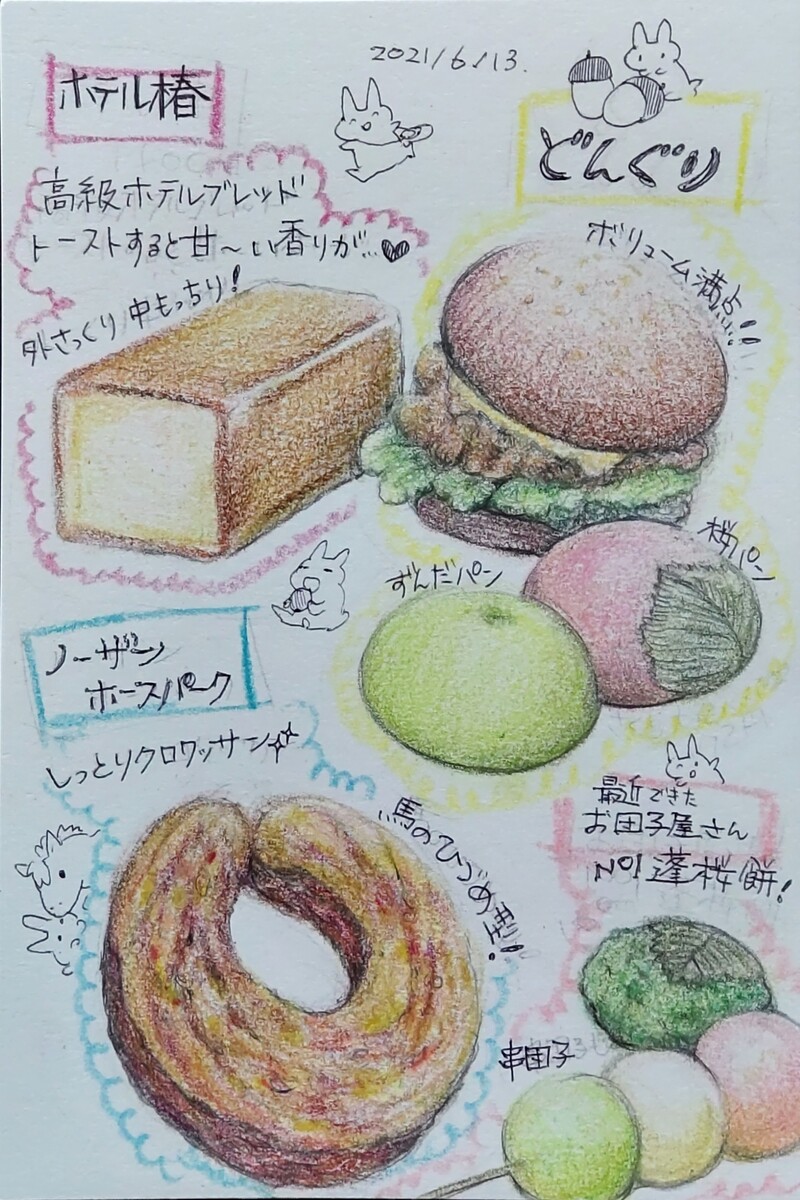 2021/6/13.
ホテル椿
高級ホテルブレッド
トーストすると甘〜い香りが…♥
外さっくり 中もっちり!
どんぐり
ボリューム満点!!
ずんだパン
桜パン
ノーザン
ホースパーク
しっとりクロワッサン
馬のひづめ型!!
最近できた
お団子屋さん
No1 蓬桜餅!
串団子